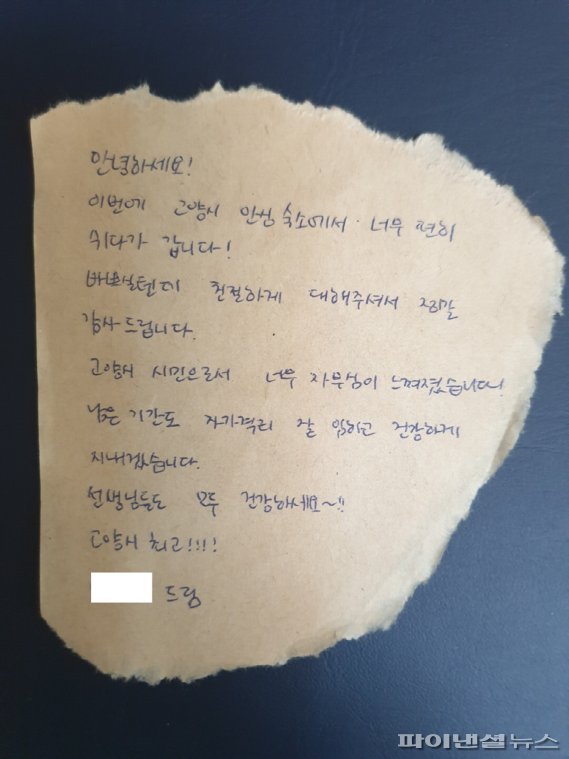 안녕하세요!
이번에 고양시 안심숙소에서 너무 편히
쉬다가 갑니다!
바쁘실텐데 친절하게 대해주셔서 정말
감사드립니다.
고양시 시민으로서 너무 자부심이 느껴졌습니다!
남은 기간도 자가격리 잘 임하고 건강하게
지내겠습니다.
선생님들도 모두 건강하세요~!!
고양시 최고!!!!
드림
파이낸셜뉴스